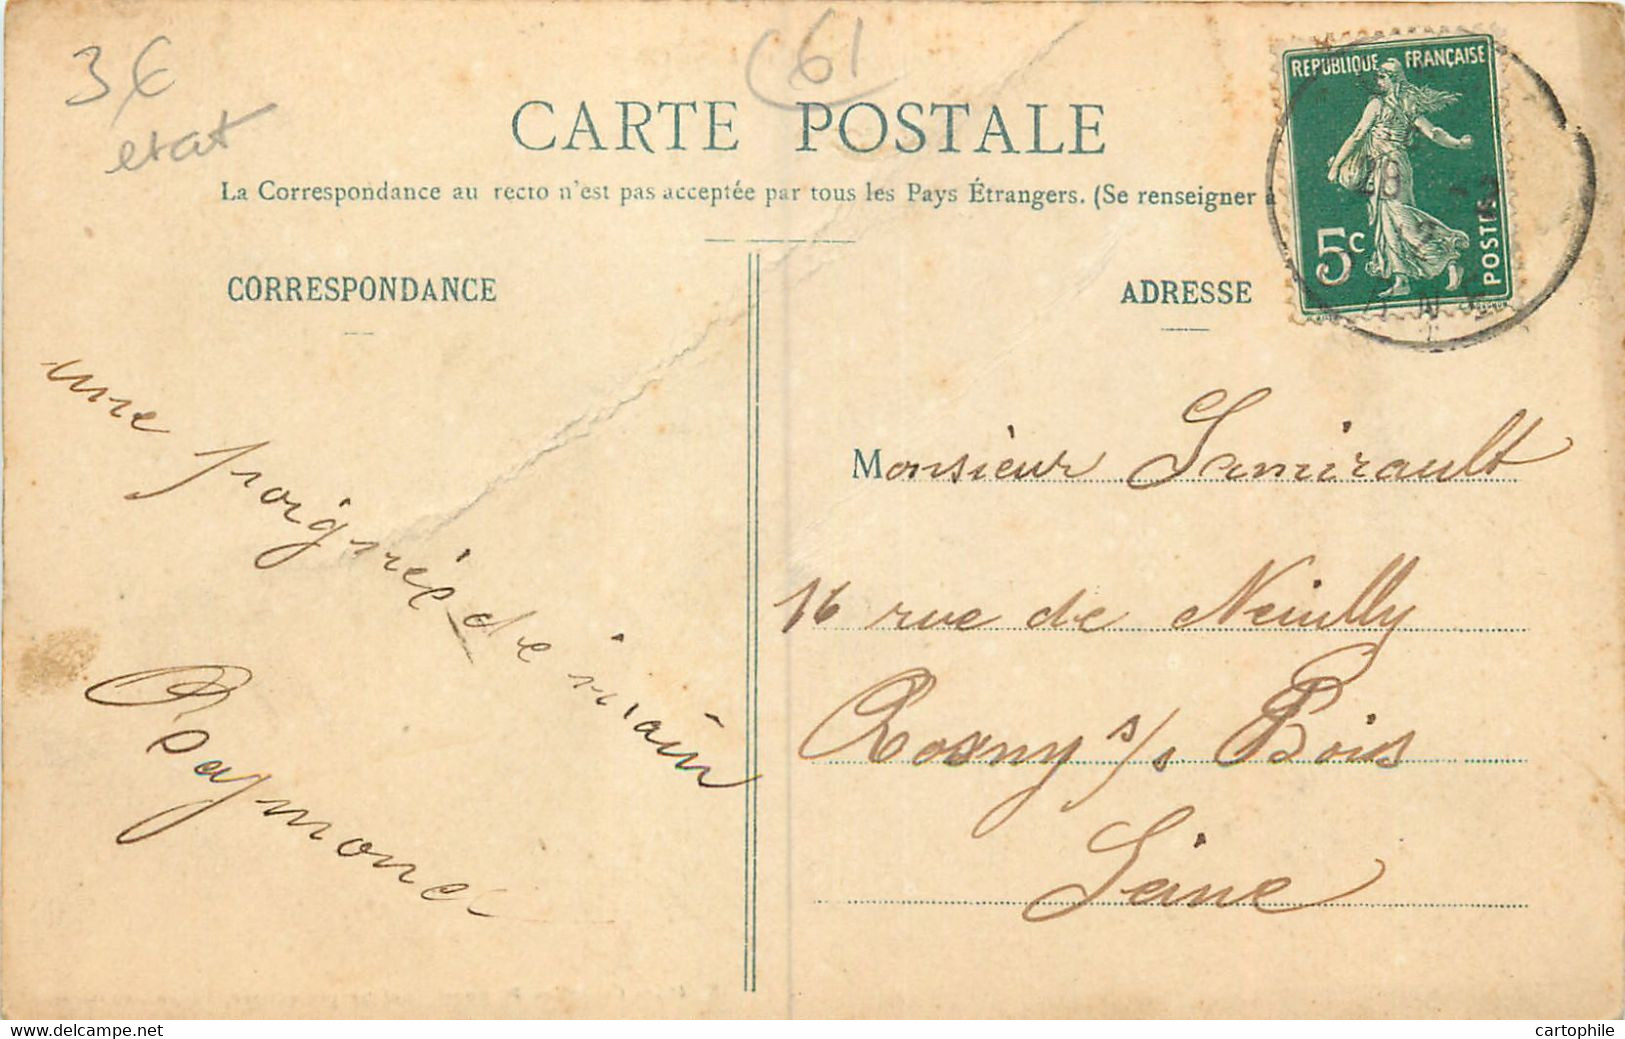 3€
etat
61
CARTE POSTALE
La Correspondance au recto n'est pas acceptée par tous les Pays Étrangers. (Se renseigner à
REPUBLIQUE FRANÇAISE
5c
POSTES
CORRESPONDANCE
ADRESSE
une poignée de main
Raymond
Monsieur
16 rue de Neuilly
Rosny s/s Bois
Seine
www.delcampe.net
cartophile